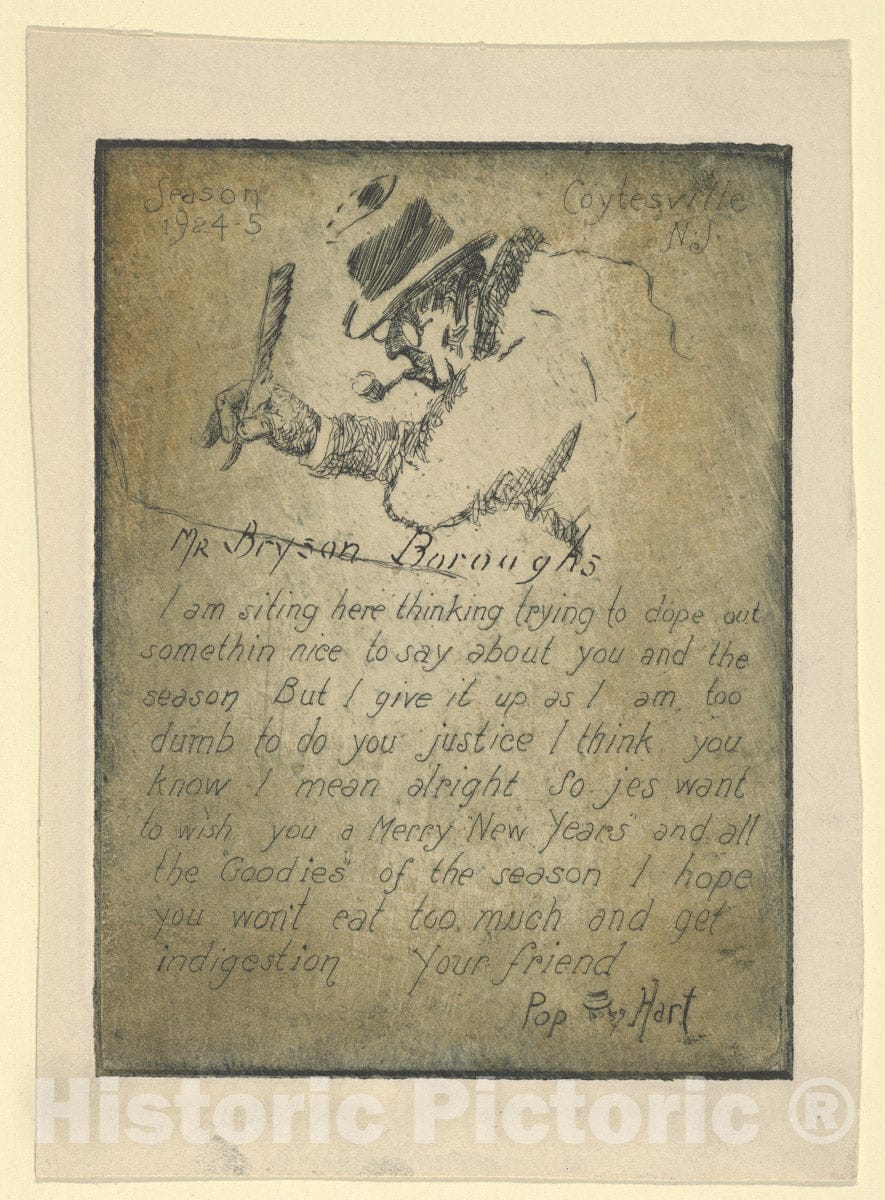 Season
1924-5
Coytesville
N.J.
MR Bryson Boroughs
I am siting here thinking trying to dope out
somethin nice to say about you and the
season But I give it up as I am too
dumb to do you justice I think you
know I mean alright So jes want
to wish you a Merry "New Years" and all
the "Goodies" of the season I hope
you won't eat too much and get
indigestion Your friend
Pop Hart
Historic Pictoric ®